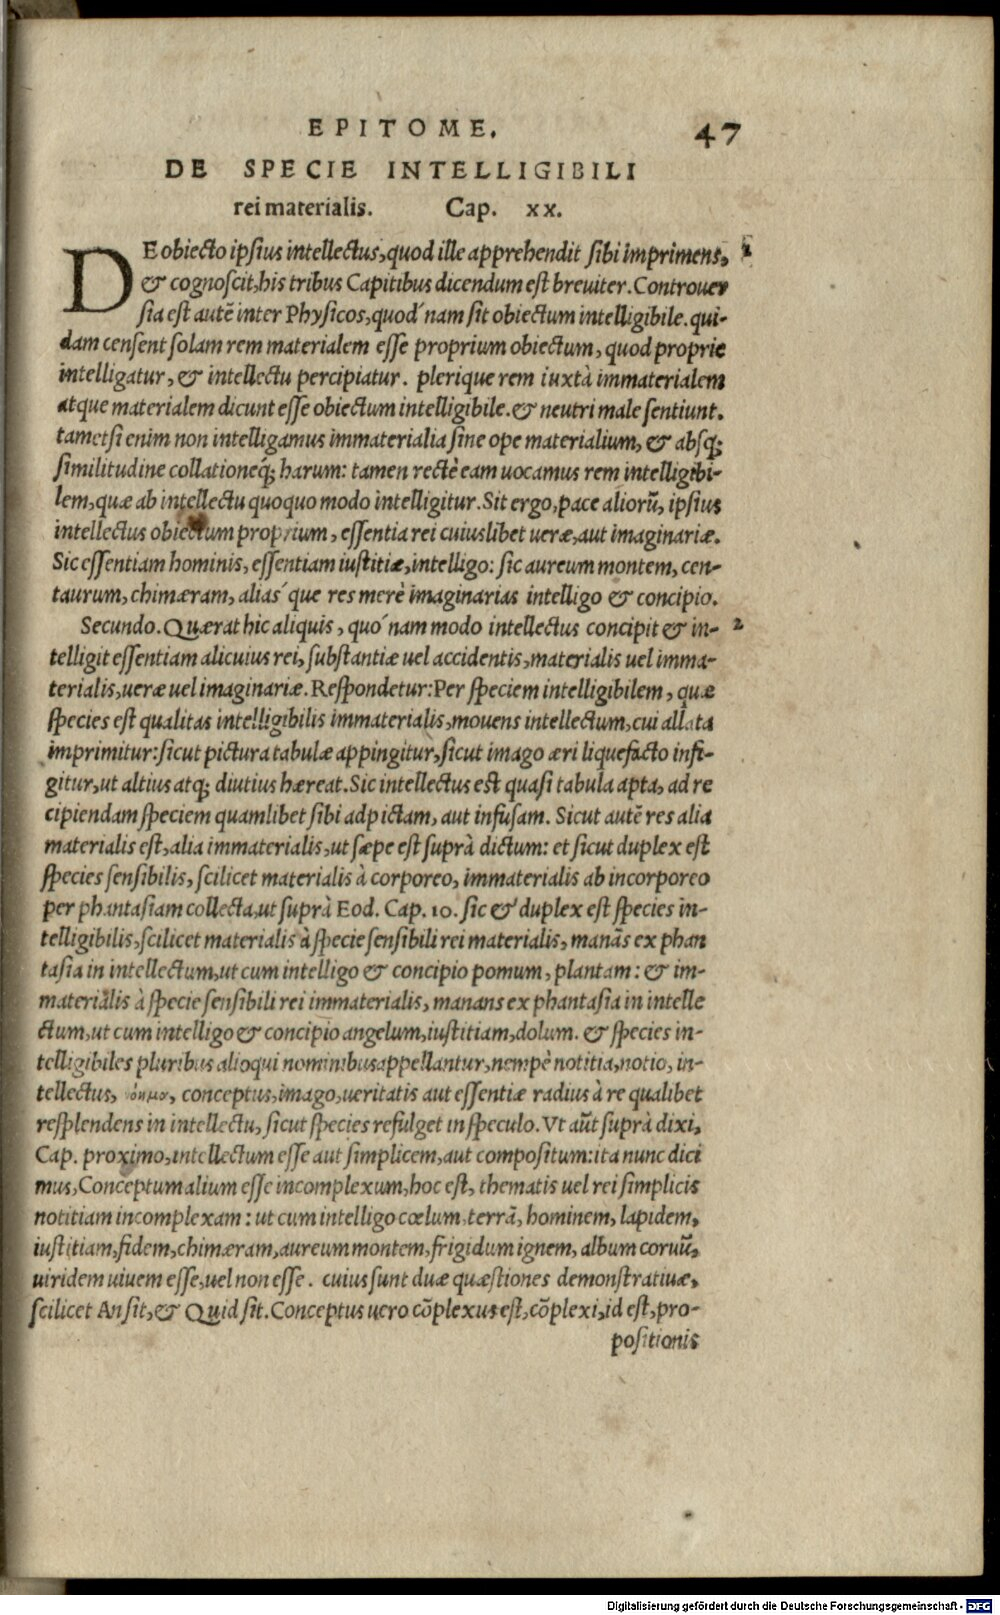 EPITOME. 47
DE SPECIE INTELLIGIBILI
rei materialis. Cap. xx.
DE obiecto ipsius intellectus, quod ille apprehendit sibi imprimens, 1
& cognoscit, his tribus Capitibus dicendum est breuiter. Controuer
sia est autē inter Physicos, quod nam sit obiectum intelligibile. qui-
dam censent solam rem materialem esse proprium obiectum, quod proprie
intelligatur, & intellectu percipiatur. plerique rem iuxtà immaterialem
atque materialem dicunt esse obiectum intelligibile. & neutri male sentiunt.
tametsi enim non intelligamus immaterialia sine ope materialium, & absq;
similitudine collationeq́; harum: tamen rectè eam uocamus rem intelligibi-
lem, quæ ab intellectu quoquo modo intelligitur. Sit ergo, pace aliorū, ipsius
intellectus obiectum proprium, essentia rei cuiuslibet ueræ, aut imaginariæ.
Sic essentiam hominis, essentiam iustitiæ, intelligo: sic aureum montem, cen-
taurum, chimæram, aliás que res merè imaginarias intelligo & concipio.
Secundo. Quærat hic aliquis, quó nam modo intellectus concipit & in- 2
telligit essentiam alicuius rei, substantiæ uel accidentis, materialis uel imma-
terialis, ueræ uel imaginariæ. Respondetur: Per speciem intelligibilem, quæ
species est qualitas intelligibilis immaterialis, mouens intellectum, cui allata
imprimitur: sicut pictura tabulæ appingitur, sicut imago æri liquefacto infi-
gitur, ut altius atq; diutius hæreat. Sic intellectus est quasi tabula apta, ad re
cipiendam speciem quamlibet sibi adpictam, aut infusam. Sicut autē res alia
materialis est, alia immaterialis, ut sæpe est suprà dictum: et sicut duplex est
species sensibilis, scilicet materialis à corporeo, immaterialis ab incorporeo
per phantasiam collecta, ut suprà Eod. Cap. 10. sic & duplex est species in-
telligibilis, scilicet materialis à specie sensibili rei materialis, manās ex phan
tasia in intellectum, ut cum intelligo & concipio pomum, plantam: & im-
materialis à specie sensibili rei immaterialis, manans ex phantasia in intelle
ctum, ut cum intelligo & concipio angelum, iustitiam, dolum. & species in-
telligibiles pluribus alioqui nominibus appellantur, nempè notitia, notio, in-
tellectus, conceptus, imago, ueritatis aut essentiæ radius à re qualibet
resplendens in intellectu, sicut species refulget in speculo. Vt aūt suprà dixi,
Cap. proximo, intellectum esse aut simplicem, aut compositum: ita nunc dici
mus, Conceptum alium esse incomplexum, hoc est, thematis uel rei simplicis
notitiam incomplexam: ut cum intelligo cœlum, terrā, hominem, lapidem,
iustitiam, fidem, chimæram, aureum montem, frigidum ignem, album coruū,
uiridem uiuem esse, uel non esse. cuius sunt duæ quæstiones demonstratiuæ,
scilicet An sit, & Quid sit. Conceptus uero cōplexus est, cōplexi, id est, pro-
positionis
Digitalisierung gefördert durch die Deutsche Forschungsgemeinschaft - DFG